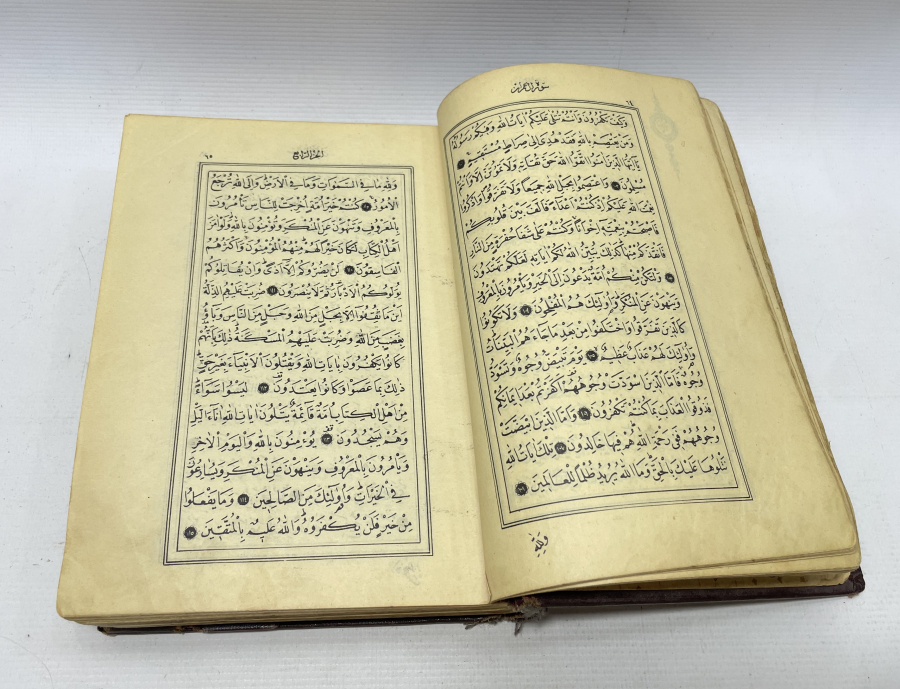 سورة آل عمران
٦٤
وَكَيْفَ تَكْفُرُونَ وَاَنْتُمْ تُتْلٰى عَلَيْكُمْ اٰيَاتُ اللهِ وَفِيكُمْ رَسُولُهُ
وَمَنْ يَعْتَصِمْ بِاللهِ فَقَدْ هُدِيَ اِلٰى صِرَاطٍ مُسْتَقِيمٍ ١٠١
يَا اَيُّهَا الَّذِينَ اٰمَنُوا اتَّقُوا اللهَ حَقَّ تُقَاتِهِ وَلَا تَمُوتُنَّ اِلَّا وَاَنْتُمْ
مُسْلِمُونَ ١٠٢ وَاعْتَصِمُوا بِحَبْلِ اللهِ جَمِيعًا وَلَا تَفَرَّقُوا وَاذْكُرُوا
نِعْمَتَ اللهِ عَلَيْكُمْ اِذْ كُنْتُمْ اَعْدَاءً فَاَلَّفَ بَيْنَ قُلُوبِكُمْ
فَاَصْبَحْتُمْ بِنِعْمَتِهِ اِخْوَانًا وَكُنْتُمْ عَلٰى شَفَا حُفْرَةٍ مِنَ النَّارِ
فَاَنْقَذَكُمْ مِنْهَا كَذٰلِكَ يُبَيِّنُ اللهُ لَكُمْ اٰيَاتِهِ لَعَلَّكُمْ تَهْتَدُونَ
١٠٣ وَلْتَكُنْ مِنْكُمْ اُمَّةٌ يَدْعُونَ اِلَى الْخَيْرِ وَيَأْمُرُونَ بِالْمَعْرُوفِ
وَيَنْهَوْنَ عَنِ الْمُنْكَرِ وَاُولٰئِكَ هُمُ الْمُفْلِحُونَ ١٠٤ وَلَا تَكُونُوا
كَالَّذِينَ تَفَرَّقُوا وَاخْتَلَفُوا مِنْ بَعْدِ مَا جَاءَهُمُ الْبَيِّنَاتُ
وَاُولٰئِكَ لَهُمْ عَذَابٌ عَظِيمٌ ١٠٥ يَوْمَ تَبْيَضُّ وُجُوهٌ وَتَسْوَدُّ
وُجُوهٌ فَاَمَّا الَّذِينَ اسْوَدَّتْ وُجُوهُهُمْ اَكَفَرْتُمْ بَعْدَ اِيمَانِكُمْ
فَذُوقُوا الْعَذَابَ بِمَا كُنْتُمْ تَكْفُرُونَ ١٠٦ وَاَمَّا الَّذِينَ ابْيَضَّتْ
وُجُوهُهُمْ فَفِي رَحْمَةِ اللهِ هُمْ فِيهَا خَالِدُونَ ١٠٧ تِلْكَ اٰيَاتُ اللهِ
نَتْلُوهَا عَلَيْكَ بِالْحَقِّ وَمَا اللهُ يُرِيدُ ظُلْمًا لِلْعَالَمِينَ ١٠٨
وَلِلّٰهِ
الجزء الرابع
٦٥
وَلِلّٰهِ مَا فِي السَّمٰوَاتِ وَمَا فِي الْاَرْضِ وَاِلَى اللهِ تُرْجَعُ
الْاُمُورُ ١٠٩ كُنْتُمْ خَيْرَ اُمَّةٍ اُخْرِجَتْ لِلنَّاسِ تَأْمُرُونَ
بِالْمَعْرُوفِ وَتَنْهَوْنَ عَنِ الْمُنْكَرِ وَتُؤْمِنُونَ بِاللهِ وَلَوْ اٰمَنَ
اَهْلُ الْكِتَابِ لَكَانَ خَيْرًا لَهُمْ مِنْهُمُ الْمُؤْمِنُونَ وَاَكْثَرُهُمُ
الْفَاسِقُونَ ١١٠ لَنْ يَضُرُّوكُمْ اِلَّا اَذًى وَاِنْ يُقَاتِلُوكُمْ
يُوَلُّوكُمُ الْاَدْبَارَ ثُمَّ لَا يُنْصَرُونَ ١١١ ضُرِبَتْ عَلَيْهِمُ الذِّلَّةُ
اَيْنَ مَا ثُقِفُوا اِلَّا بِحَبْلٍ مِنَ اللهِ وَحَبْلٍ مِنَ النَّاسِ وَبَاؤُ
بِغَضَبٍ مِنَ اللهِ وَضُرِبَتْ عَلَيْهِمُ الْمَسْكَنَةُ ذٰلِكَ بِاَنَّهُمْ
كَانُوا يَكْفُرُونَ بِاٰيَاتِ اللهِ وَيَقْتُلُونَ الْاَنْبِيَاءَ بِغَيْرِ حَقٍّ
ذٰلِكَ بِمَا عَصَوْا وَكَانُوا يَعْتَدُونَ ١١٢ لَيْسُوا سَوَاءً
مِنْ اَهْلِ الْكِتَابِ اُمَّةٌ قَائِمَةٌ يَتْلُونَ اٰيَاتِ اللهِ اٰنَاءَ الَّيْلِ
وَهُمْ يَسْجُدُونَ ١١٣ يُؤْمِنُونَ بِاللهِ وَالْيَوْمِ الْاٰخِرِ
وَيَأْمُرُونَ بِالْمَعْرُوفِ وَيَنْهَوْنَ عَنِ الْمُنْكَرِ وَيُسَارِعُونَ
فِي الْخَيْرَاتِ وَاُولٰئِكَ مِنَ الصَّالِحِينَ ١١٤ وَمَا يَفْعَلُوا
مِنْ خَيْرٍ فَلَنْ يُكْفَرُوهُ وَاللهُ عَلِيمٌ بِالْمُتَّقِينَ ١١٥